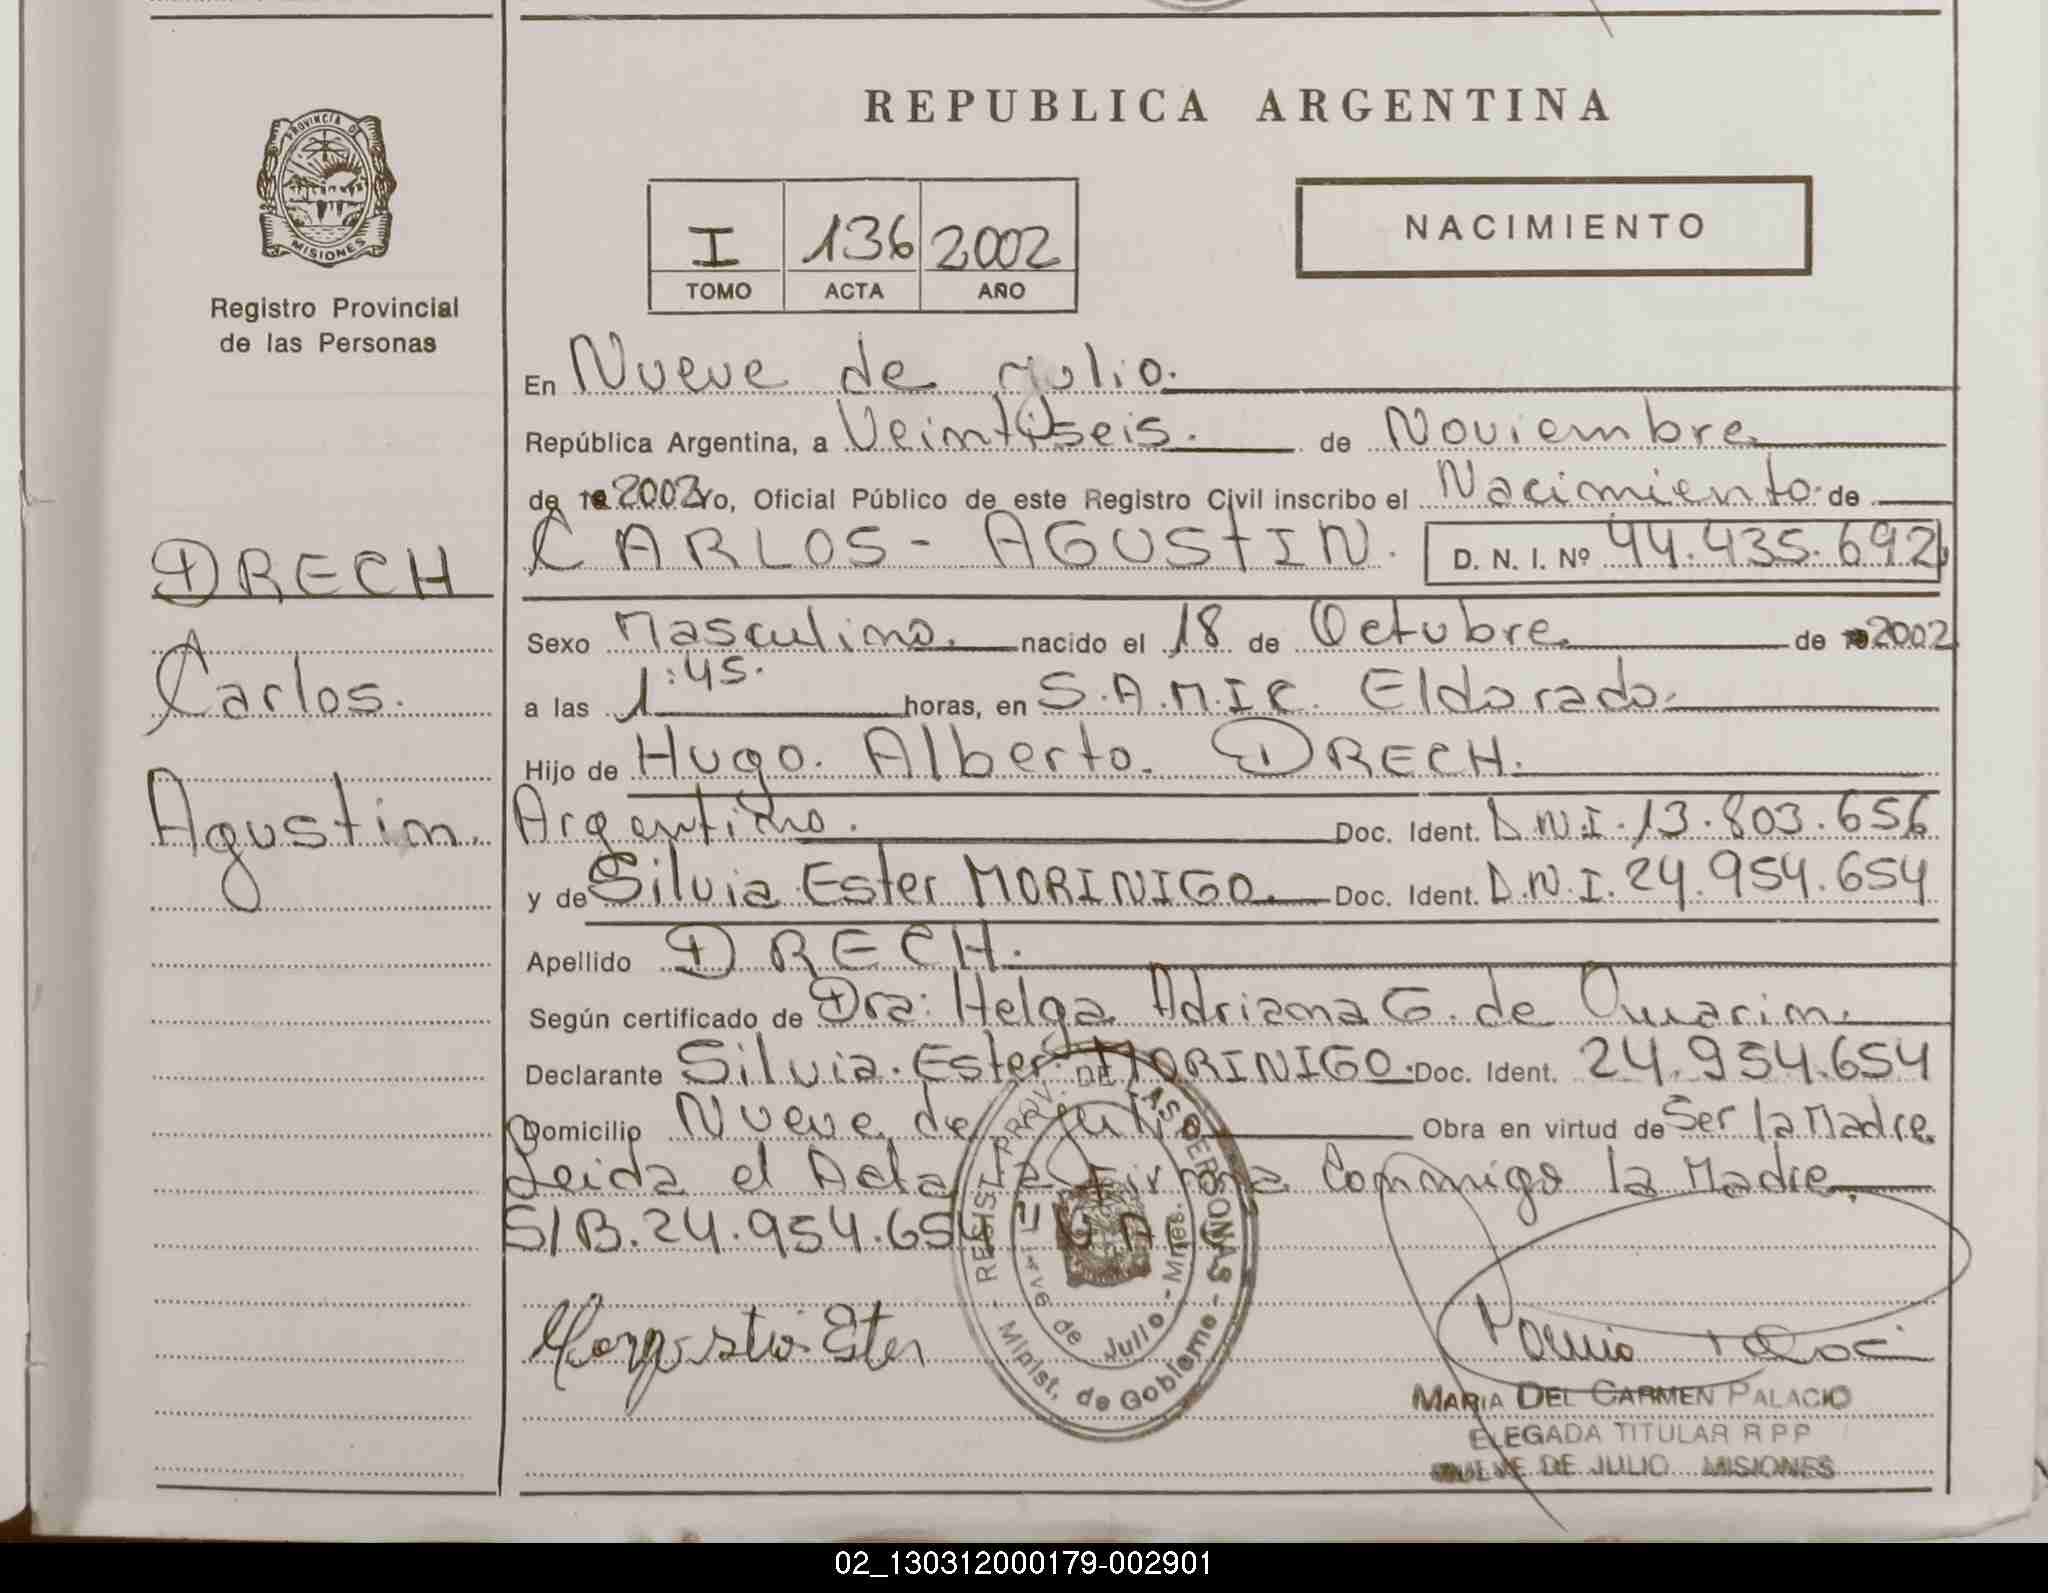 REPUBLICA ARGENTINA
PROVINCIA DE
MISIONES
Registro Provincial
de las Personas
I 136 2002
TOMO ACTA AÑO
NACIMIENTO
DRECH
Carlos.
Agustin.
En Nueve de Julio.
República Argentina, a Veintiseis. de Noviembre
de 2002 Yo, Oficial Público de este Registro Civil inscribo el Nacimiento de
CARLOS - AGUSTIN. D. N. I. Nº 44.435.692
Sexo Masculino. nacido el 18 de Octubre de 2002
a las 1:45. horas, en S.A.M.I.C. Eldorado.
Hijo de Hugo. Alberto. DRECH.
Argentino. Doc. Ident. D.N.I. 13.803.656
y de Silvia Ester MORINIGO. Doc. Ident. D.N.I. 24.954.654
Apellido DRECH.
Según certificado de Dra: Helga Adriana G. de
Declarante Silvia. Ester. MORINIGO. Doc. Ident. 24.954.654
Domicilio Nueve de Julio Obra en virtud de Ser la Madre.
Leida el Acta la Firma Conmigo la Madre.
S/B. 24.954.654
REGIST. PROV. DE LAS PERSONAS - Minist. de Gobierno -
Nueve de Julio - Mnes.
Ester
MARIA DEL CARMEN PALACIO
ELEGADA TITULAR R P P
NUEVE DE JULIO MISIONES
02_130312000179-002901